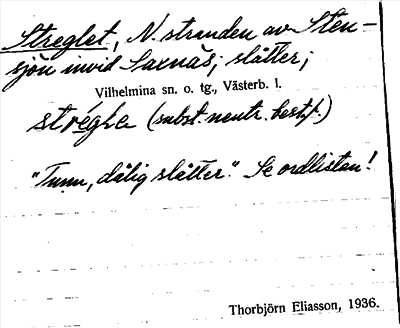 Streglet, N. stranden av Sten-
sjön invid Saxnäs; slåtter;
Vilhelmina sn. o. tg., Västerb. l.
strégle (subst. neutr. best. f.)
"Tunn, dålig slåtter." Se ordlistan!
Thorbjörn Eliasson, 1936.